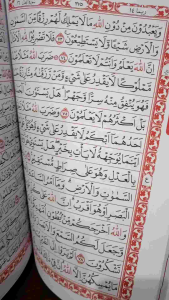 ربما ١٤
٢٧٥
وَيَعْبُدُونَ مِنْ دُونِ اللهِ مَا لَا يَمْلِكُ لَهُمْ رِزْقًا مِّنَ السَّمٰوٰتِ
وَالْأَرْضِ شَيْئًا وَّلَا يَسْتَطِيعُونَ ﴿٧٣﴾ فَلَا تَضْرِبُوا لِلّٰهِ الْأَمْثَالَ
إِنَّ اللهَ يَعْلَمُ وَأَنْتُمْ لَا تَعْلَمُونَ ﴿٧٤﴾ ضَرَبَ اللهُ مَثَلًا عَبْدًا
مَّمْلُوكًا لَّا يَقْدِرُ عَلٰى شَيْءٍ وَّمَنْ رَّزَقْنٰهُ مِنَّا رِزْقًا حَسَنًا
فَهُوَ يُنْفِقُ مِنْهُ سِرًّا وَّجَهْرًا هَلْ يَسْتَوٗنَ الْحَمْدُ لِلّٰهِ
بَلْ أَكْثَرُهُمْ لَا يَعْلَمُونَ ﴿٧٥﴾ وَضَرَبَ اللهُ مَثَلًا رَّجُلَيْنِ
أَحَدُهُمَا أَبْكَمُ لَا يَقْدِرُ عَلٰى شَيْءٍ وَّهُوَ كَلٌّ عَلٰى مَوْلٰىهُ
أَيْنَمَا يُوَجِّهْهُّ لَا يَأْتِ بِخَيْرٍ هَلْ يَسْتَوِي هُوَ وَمَنْ يَّأْمُرُ
بِالْعَدْلِ وَهُوَ عَلٰى صِرَاطٍ مُّسْتَقِيمٍ ﴿٧٦﴾ وَلِلّٰهِ غَيْبُ
السَّمٰوٰتِ وَالْأَرْضِ وَمَا أَمْرُ السَّاعَةِ إِلَّا كَلَمْحِ
الْبَصَرِ أَوْ هُوَ أَقْرَبُ إِنَّ اللهَ
وَاللهُ أَخْرَجَكُمْ مِّنْ بُطُونِ
وَّجَعَلَ لَكُمُ السَّمْعَ وَالْأَبْصَارَ
تَشْكُرُونَ ﴿٧٨﴾
مَا يُمْسِكُهُنَّ إِلَّا اللهُ